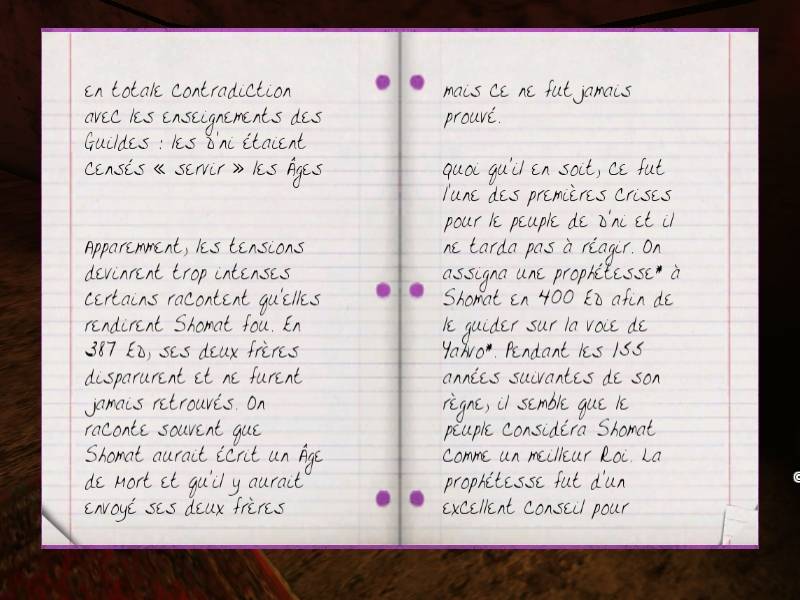 en totale contradiction
avec les enseignements des
Guildes : les D'ni étaient
censés « servir » les Âges
Apparemment, les tensions
devinrent trop intenses
certains racontent qu'elles
rendirent Shomat fou. En
387 ED, ses deux frères
disparurent et ne furent
jamais retrouvés. On
raconte souvent que
Shomat aurait écrit un Âge
de Mort et qu'il y aurait
envoyé ses deux frères
mais ce ne fut jamais
prouvé.
Quoi qu'il en soit, ce fut
l'une des premières crises
pour le peuple de D'ni et il
ne tarda pas à réagir. On
assigna une prophétesse* à
Shomat en 400 ED afin de
le guider sur la voie de
Yahvo*. Pendant les 155
années suivantes de son
règne, il semble que le
peuple considéra Shomat
comme un meilleur Roi. La
prophétesse fut d'un
excellent conseil pour